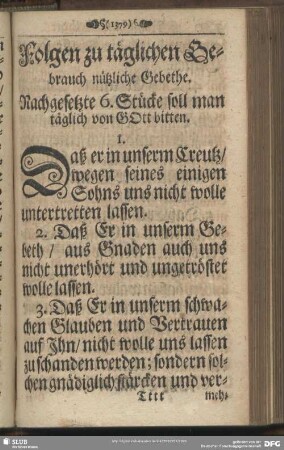 (1379)
Folgen zu täglichen Ge-
brauch nützliche Gebethe.
Nachgesetzte 6. Stücke soll man
täglich von GOtt bitten.
1.
Daß er in unserm Creutz/
wegen seines einigen
Sohns uns nicht wolle
untertretten lassen.
2. Daß Er in unserm Ge-
beth / aus Gnaden auch uns
nicht unerhört und ungetröstet
wolle lassen.
3. Daß Er in unserm schwa-
chen Glauben und Vertrauen
auf Ihn/ nicht wolle uns lassen
zu schanden werden; sondern sol-
chen gnädiglich stärcken und ver-
Tttt
meh-
SLUB
DFG